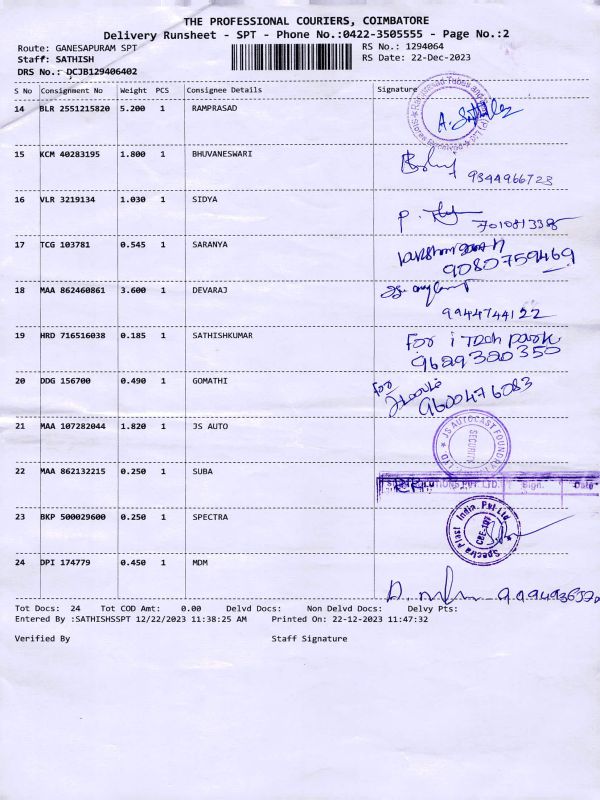 THE PROFESSIONAL COURIERS, COIMBATORE
Delivery Runsheet - SPT - Phone No.:0422-3505555 - Page No.:2
Route: GANESAPURAM SPT
RS No.: 1294064
Staff: SATHISH
RS Date: 22-Dec-2023
DRS No.: DCJB129406402
S No Consignment No Weight PCS Consignee Details Signature
14 BLR 2551215820 5.200 1 RAMPRASAD
15 KCM 40283195 1.800 1 BHUVANESWARI
9344966723
16 VLR 3219134 1.030 1 SIDYA
7010813386
17 TCG 103781 0.545 1 SARANYA
9080759469
18 MAA 862460861 3.600 1 DEVARAJ
9944744122
19 HRD 716516038 0.185 1 SATHISHKUMAR
For i Tech park
9629320350
20 DDG 156700 0.490 1 GOMATHI
for
9600476083
21 MAA 107282044 1.820 1 JS AUTO
JS AUTOCAST FOUNDRY
SECURITY
22 MAA 862132215 0.250 1 SUBA
PVT LTD. Sign. Date
23 BKP 500029600 0.250 1 SPECTRA
Spectra Plast India Pvt Ltd
CBE-107
24 DPI 174779 0.450 1 MDM
Tot Docs: 24 Tot COD Amt: 0.00 Delvd Docs: Non Delvd Docs: Delvy Pts:
Entered By :SATHISHSSPT 12/22/2023 11:38:25 AM Printed On: 22-12-2023 11:47:32
Verified By Staff Signature